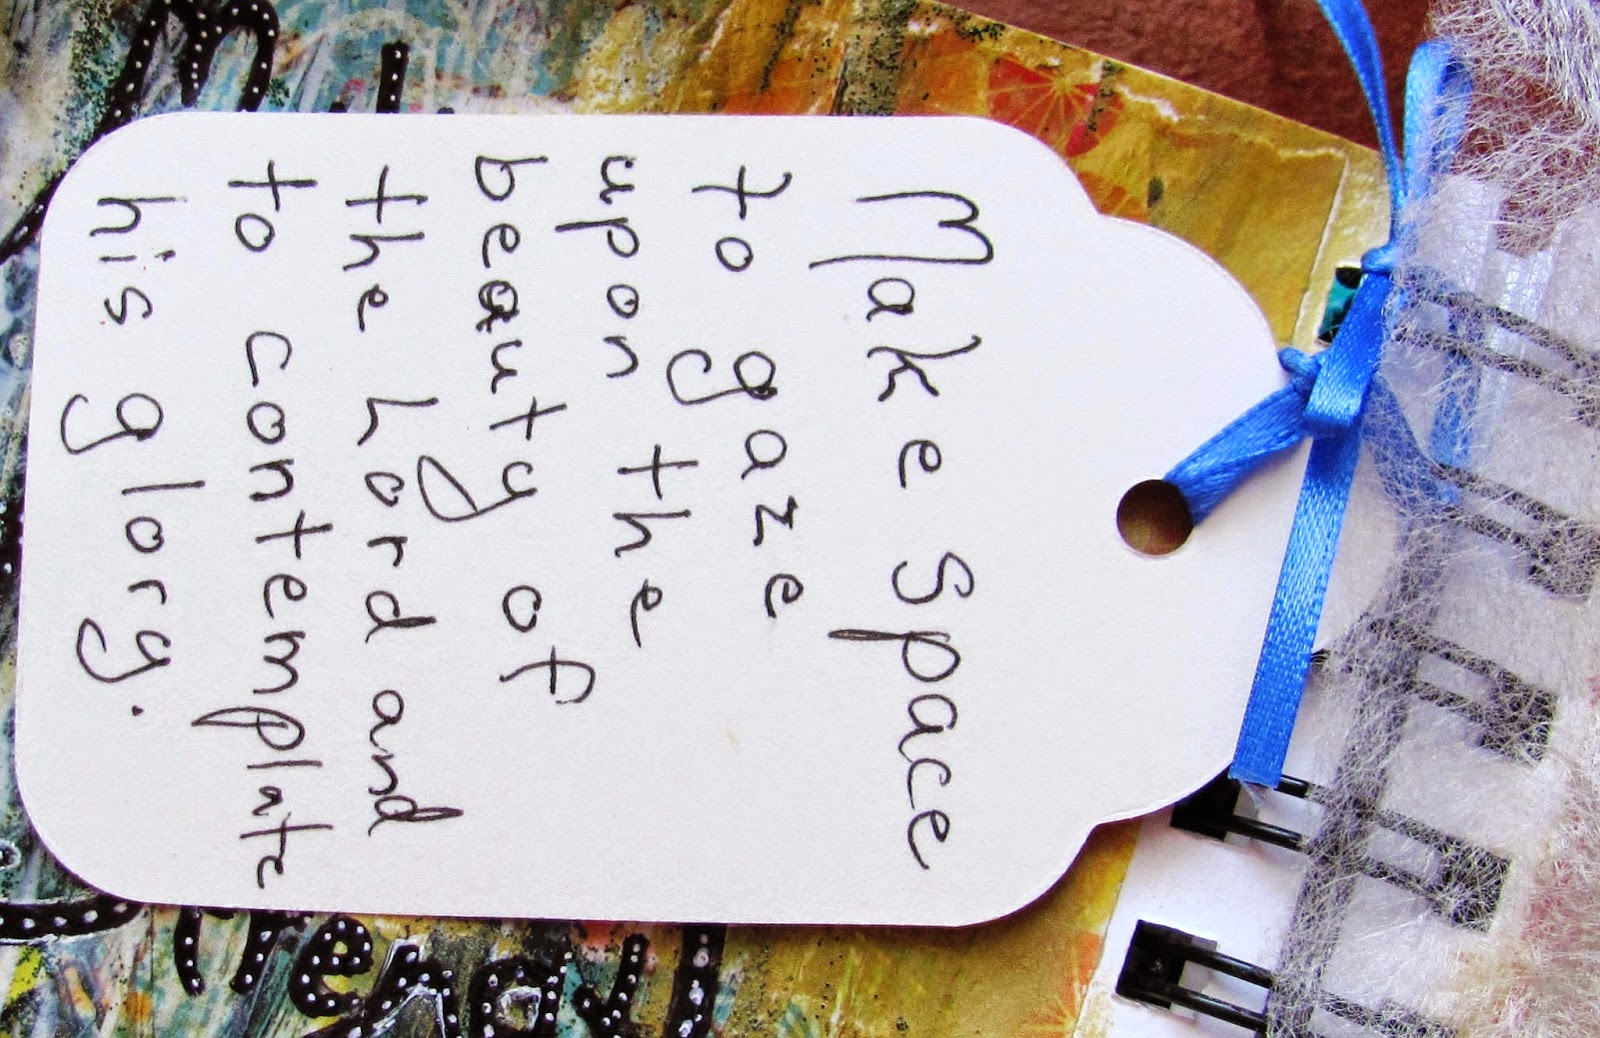 Make Space
to gaze
upon the
beauty of
the Lord and
to contemplate
his glory.